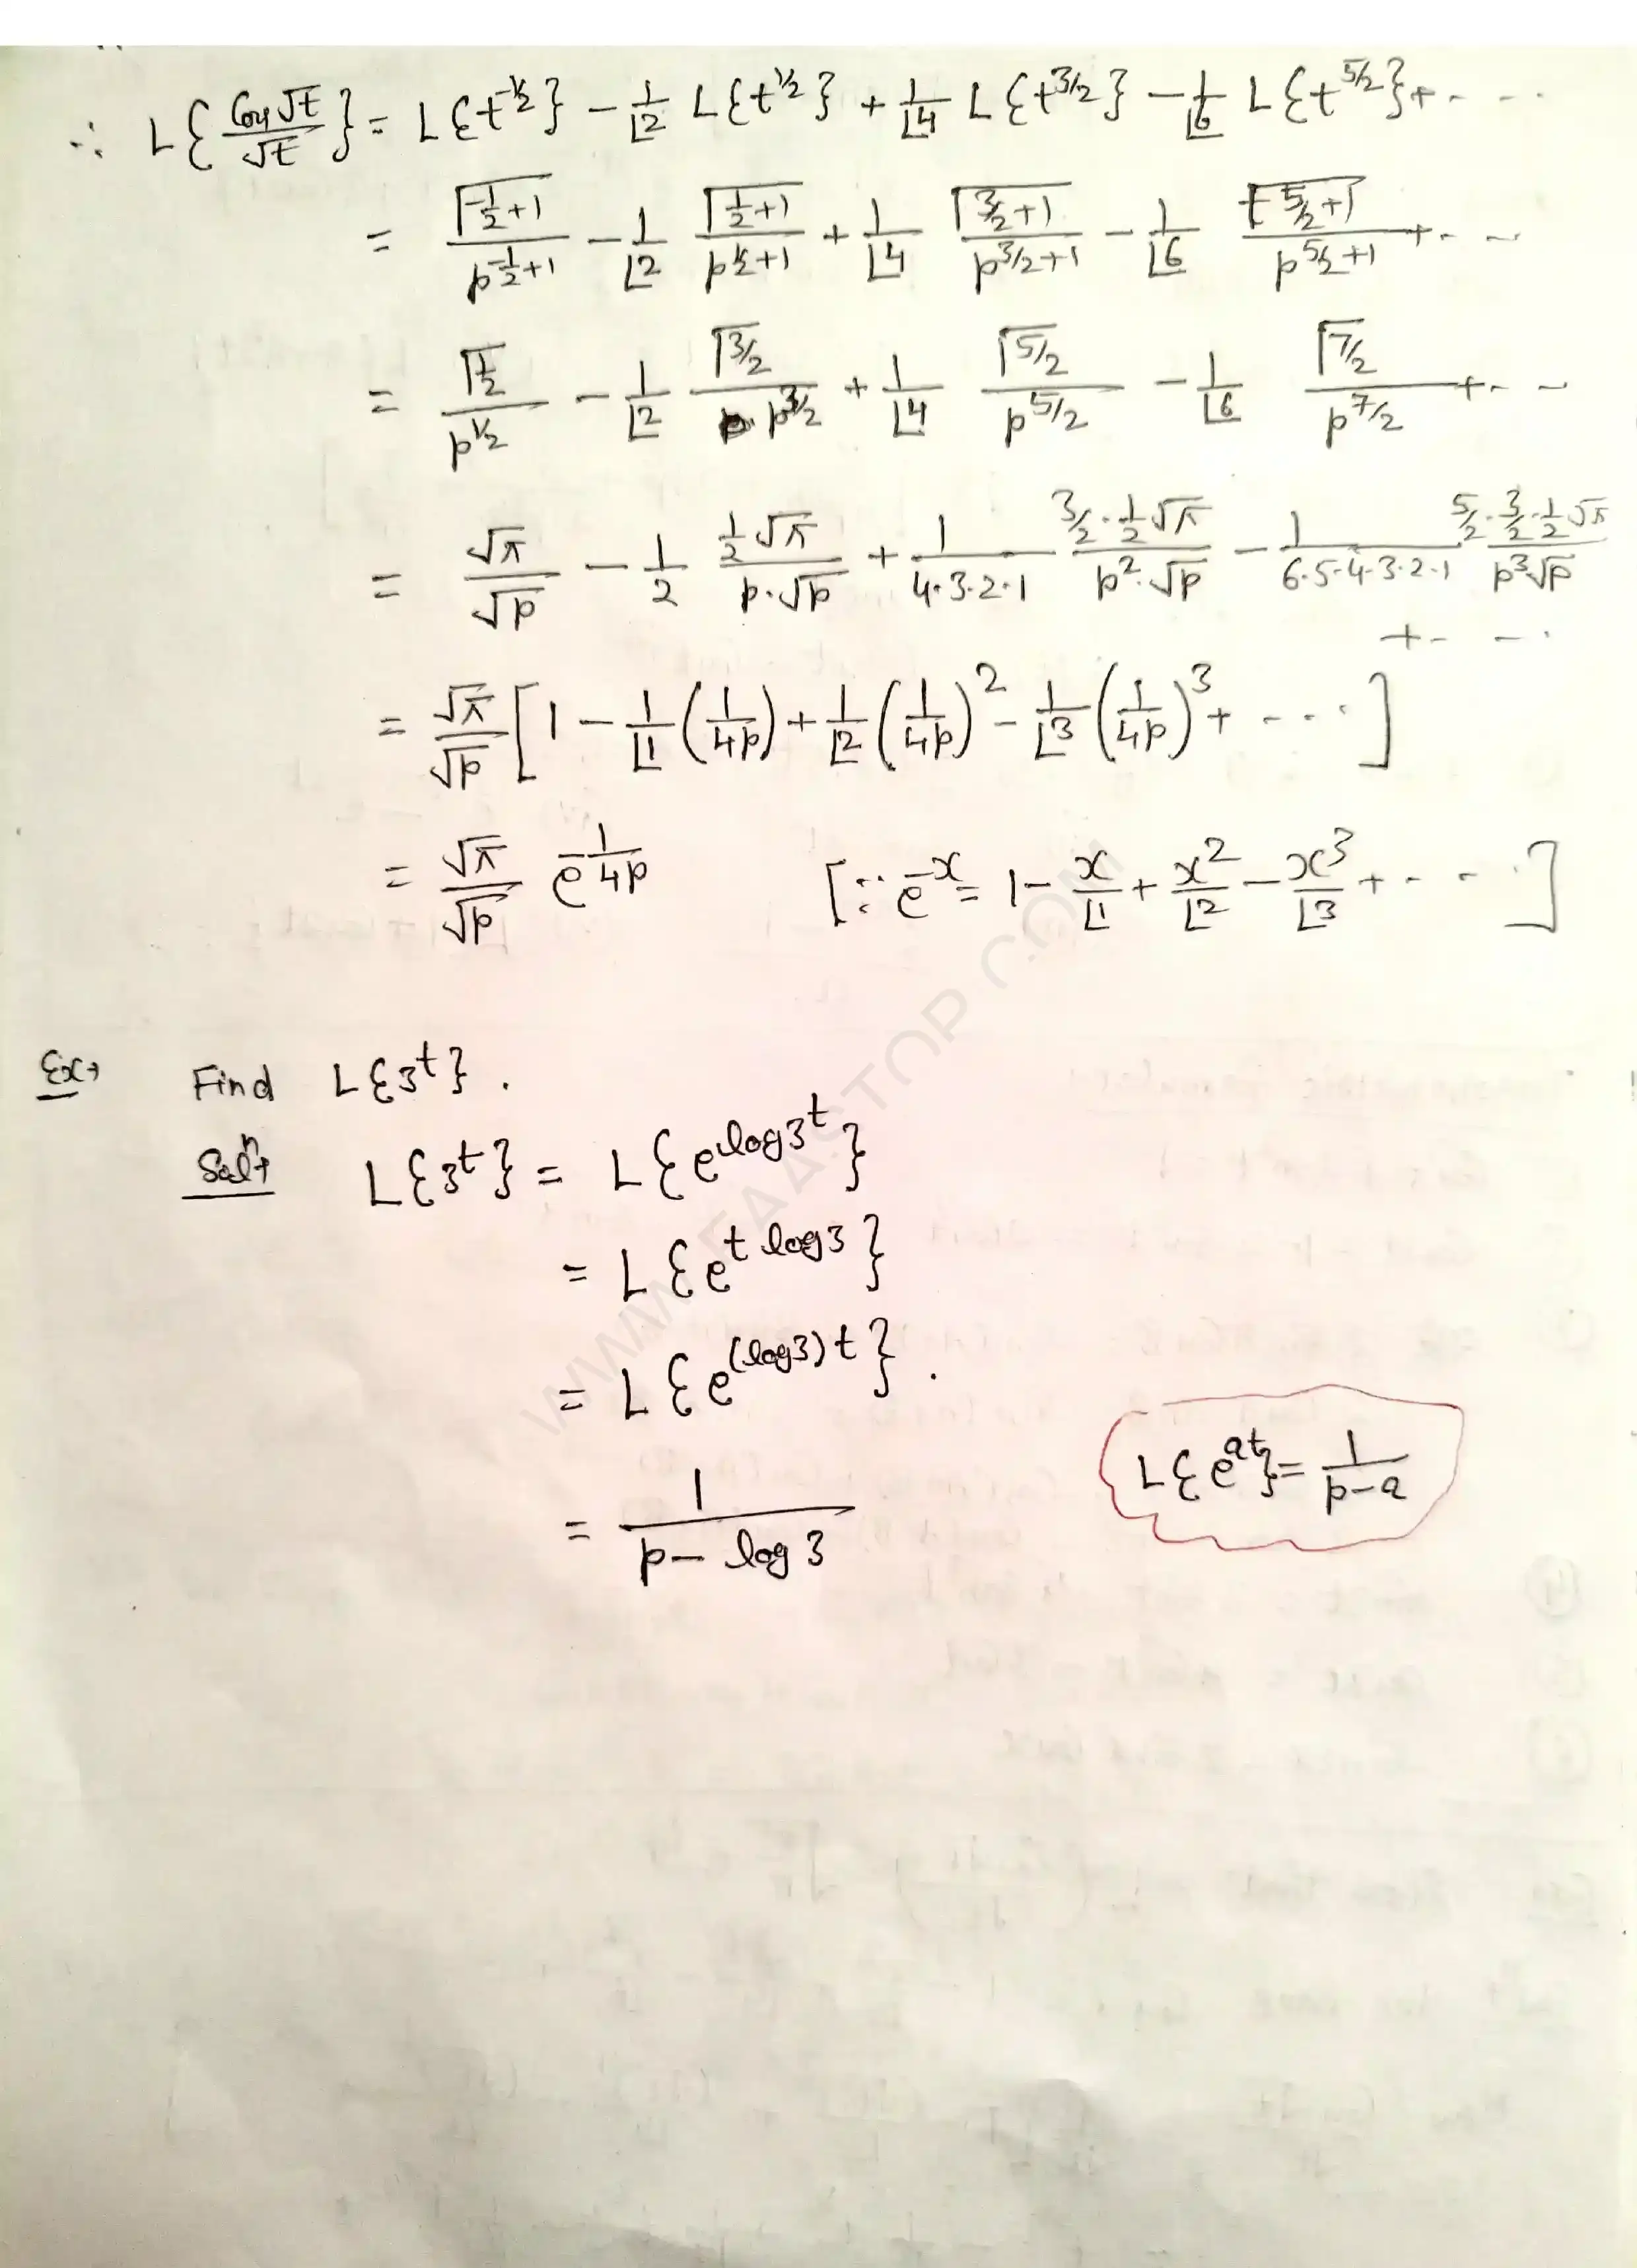 ∴ L{Cos√t/√t} = L{t^-1/2} - 1/⌊2 L{t^1/2} + 1/⌊4 L{t^3/2} - 1/⌊6 L{t^5/2} + - - -
= Γ(-1/2+1)/p^(-1/2+1) - 1/⌊2 Γ(1/2+1)/p^(1/2+1) + 1/⌊4 Γ(3/2+1)/p^(3/2+1) - 1/⌊6 Γ(5/2+1)/p^(5/2+1) + - - -
= Γ(1/2)/p^1/2 - 1/⌊2 Γ(3/2)/p^3/2 + 1/⌊4 Γ(5/2)/p^5/2 - 1/⌊6 Γ(7/2)/p^7/2 + - - -
= √π/√p - 1/2 (1/2 √π)/(p·√p) + 1/(4·3·2·1) (3/2·1/2 √π)/(p²·√p) - 1/(6·5·4·3·2·1) (5/2·3/2·1/2 √π)/(p³√p)
+ - - -
= √π/√p [1 - 1/⌊1 (1/4p) + 1/⌊2 (1/4p)² - 1/⌊3 (1/4p)³ + - - - ]
= √π/√p e^(-1/4p) [∵ e^-x = 1 - x/⌊1 + x²/⌊2 - x³/⌊3 + - - - ]
Ex→ Find L{3^t}.
Solⁿ→ L{3^t} = L{e^(log3^t)}
= L{e^(t log3)}
= L{e^((log3)t)}.
L{e^at} = 1/(p-a)
= 1/(p - log 3)
WWW.FAASTOP.COM